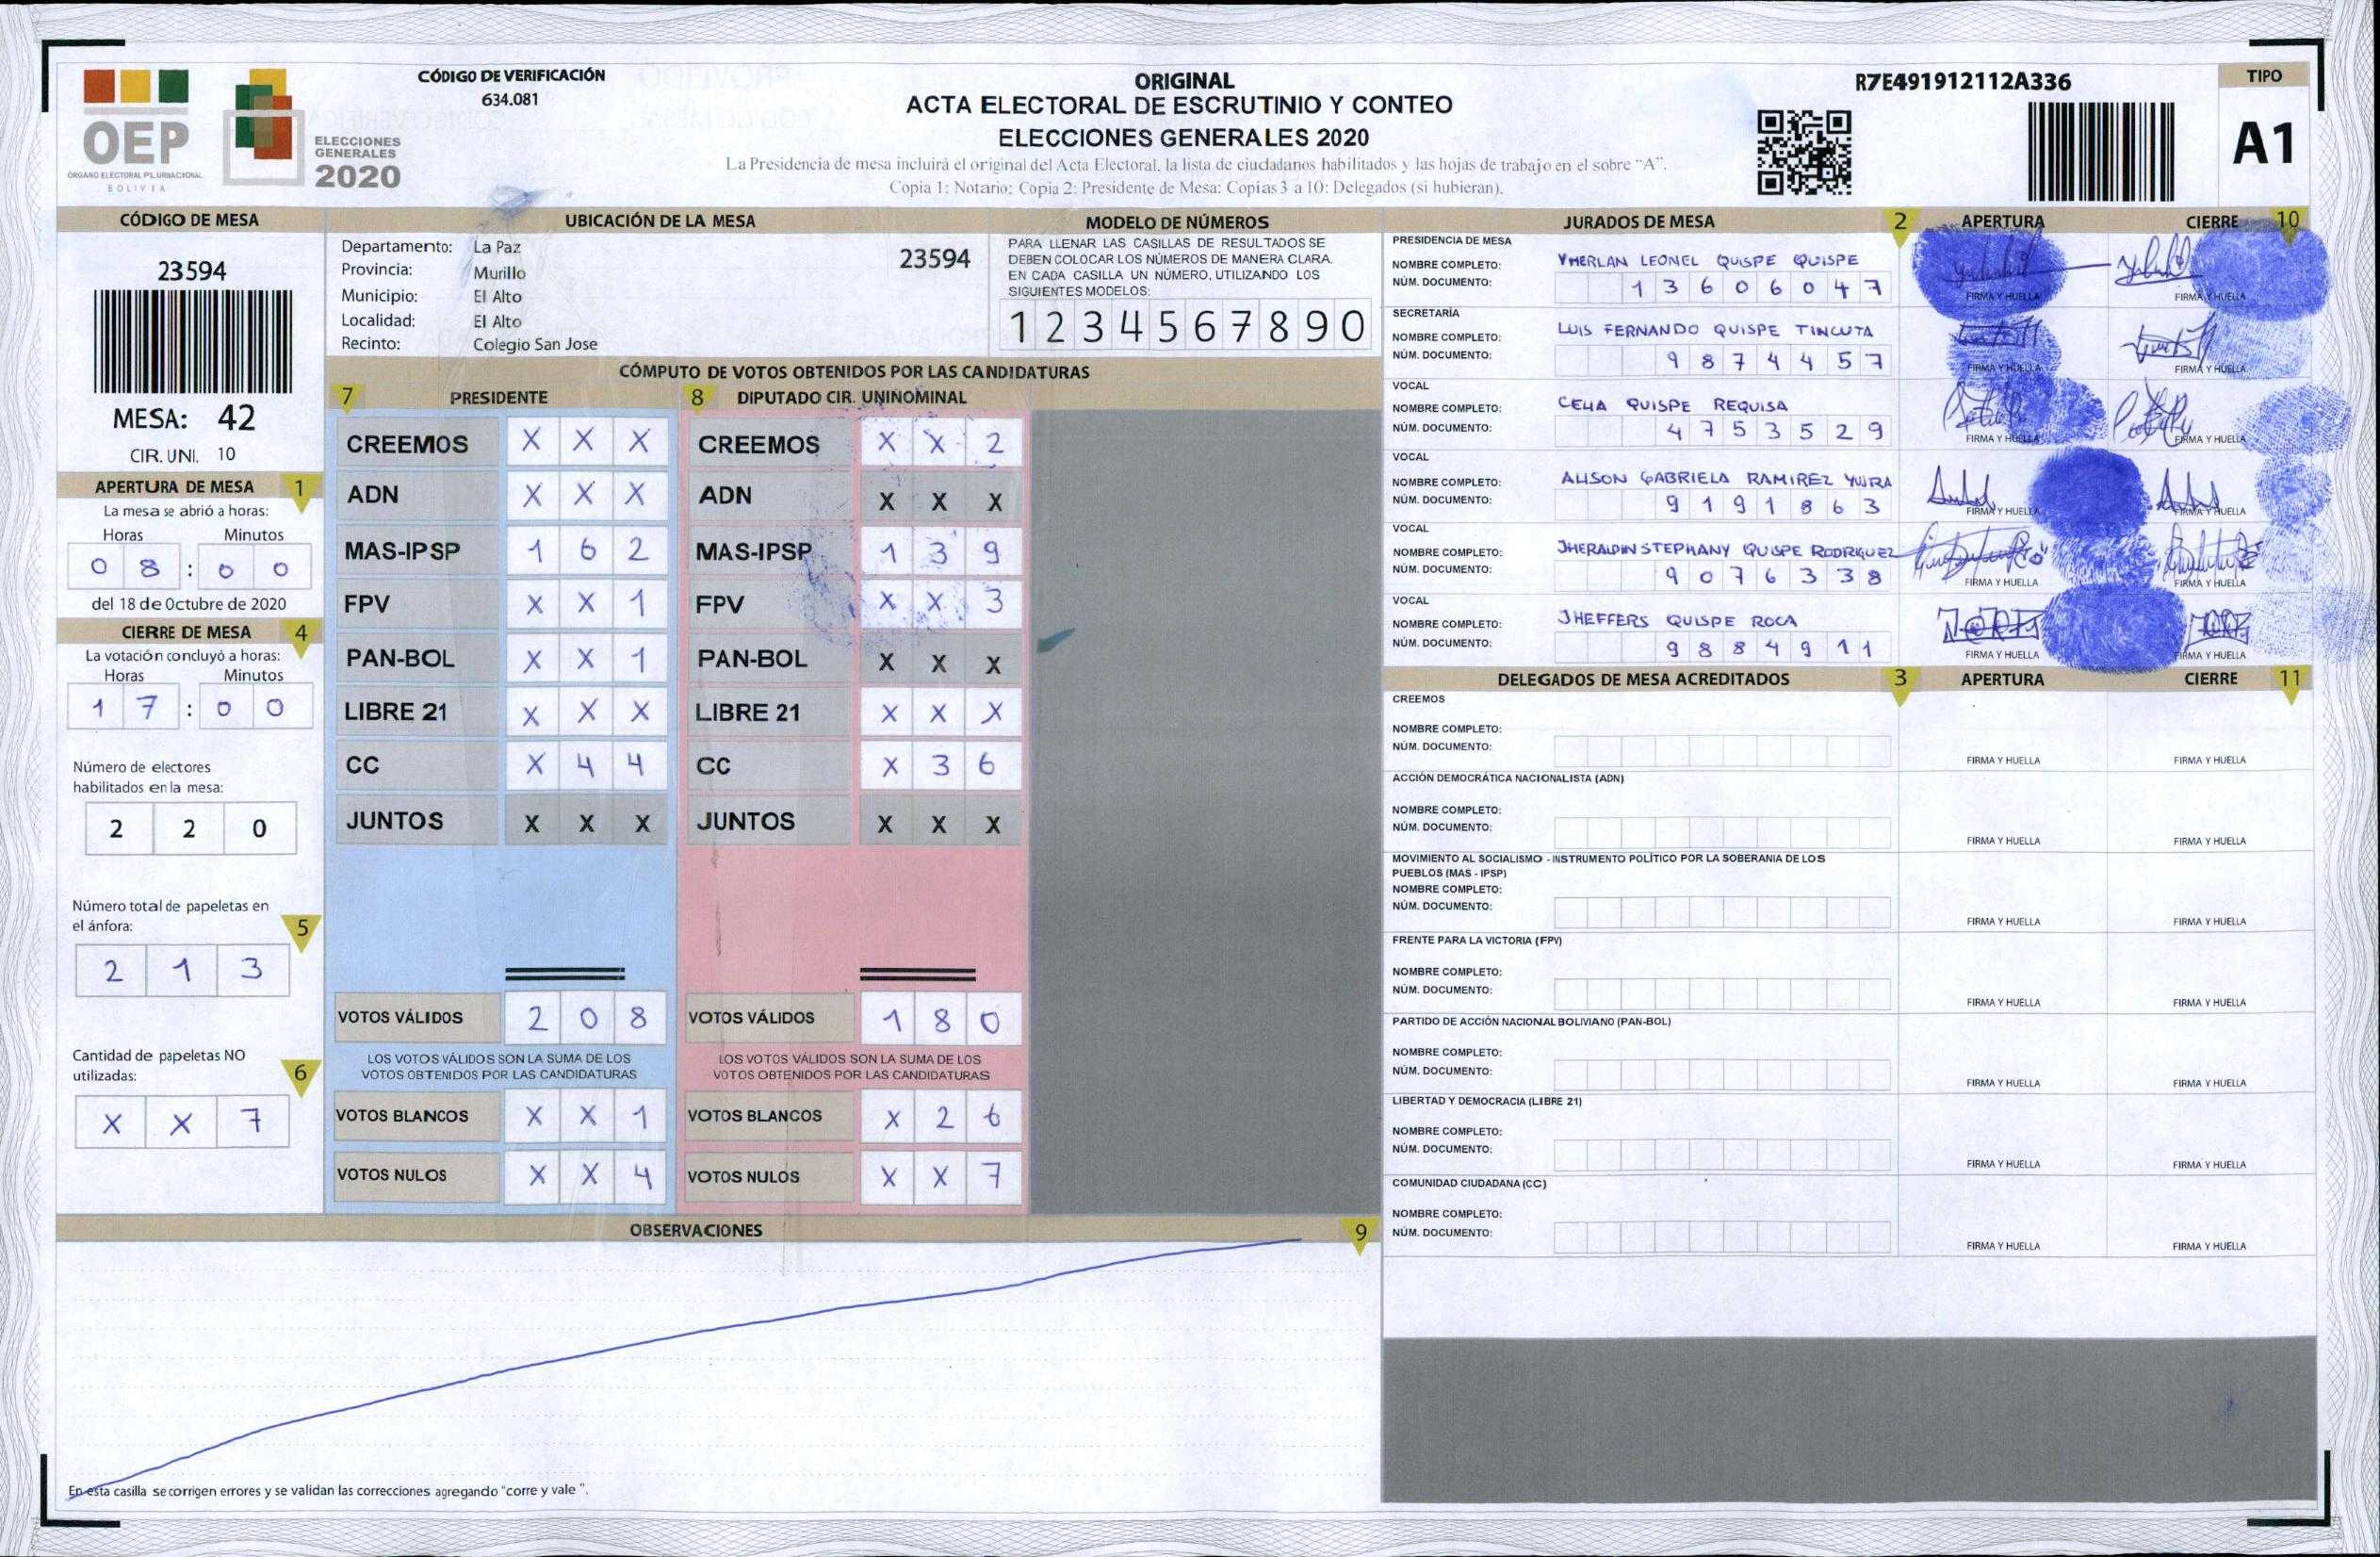 OEP
ÓRGANO ELECTORAL PLURINACIONAL
BOLIVIA
ELECCIONES
GENERALES
2020
CÓDIGO DE VERIFICACIÓN
634.081
ORIGINAL
ACTA ELECTORAL DE ESCRUTINIO Y CONTEO
ELECCIONES GENERALES 2020
La Presidencia de mesa incluirá el original del Acta Electoral, la lista de ciudadanos habilitados y las hojas de trabajo en el sobre "A".
Copia 1: Notario; Copia 2: Presidente de Mesa: Copias 3 a 10: Delegados (si hubieran).
R7E491912112A336
TIPO
A1
CÓDIGO DE MESA
23594
MESA: 42
CIR. UNI. 10
APERTURA DE MESA 1
La mesa se abrió a horas:
Horas Minutos
0 8 : 0 0
del 18 de Octubre de 2020
CIERRE DE MESA 4
La votación concluyó a horas:
Horas Minutos
1 7 : 0 0
Número de electores
habilitados en la mesa:
2 2 0
Número total de papeletas en
el ánfora: 5
2 1 3
Cantidad de papeletas NO
utilizadas: 6
X X 7
UBICACIÓN DE LA MESA
Departamento: La Paz
23594
Provincia: Murillo
Municipio: El Alto
Localidad: El Alto
Recinto: Colegio San Jose
MODELO DE NÚMEROS
PARA LLENAR LAS CASILLAS DE RESULTADOS SE
DEBEN COLOCAR LOS NÚMEROS DE MANERA CLARA.
EN CADA CASILLA UN NÚMERO, UTILIZANDO LOS
SIGUIENTES MODELOS:
1 2 3 4 5 6 7 8 9 0
CÓMPUTO DE VOTOS OBTENIDOS POR LAS CANDIDATURAS
7 PRESIDENTE
CREEMOS X X X
ADN X X X
MAS-IPSP 1 6 2
FPV X X 1
PAN-BOL X X 1
LIBRE 21 X X X
CC X 4 4
JUNTOS X X X
VOTOS VÁLIDOS 2 0 8
LOS VOTOS VÁLIDOS SON LA SUMA DE LOS
VOTOS OBTENIDOS POR LAS CANDIDATURAS
VOTOS BLANCOS X X 1
VOTOS NULOS X X 4
8 DIPUTADO CIR. UNINOMINAL
CREEMOS X X 2
ADN X X X
MAS-IPSP 1 3 9
FPV X X 3
PAN-BOL X X X
LIBRE 21 X X X
CC X 3 6
JUNTOS X X X
VOTOS VÁLIDOS 1 8 0
LOS VOTOS VÁLIDOS SON LA SUMA DE LOS
VOTOS OBTENIDOS POR LAS CANDIDATURAS
VOTOS BLANCOS X 2 6
VOTOS NULOS X X 7
OBSERVACIONES 9
En esta casilla se corrigen errores y se validan las correcciones agregando "corre y vale ".
JURADOS DE MESA 2 APERTURA CIERRE 10
PRESIDENCIA DE MESA
NOMBRE COMPLETO: YHERLAN LEONEL QUISPE QUISPE
NÚM. DOCUMENTO: 1 3 6 0 6 0 4 7
FIRMA Y HUELLA FIRMA Y HUELLA
SECRETARÍA
NOMBRE COMPLETO: LUIS FERNANDO QUISPE TINCUTA
NÚM. DOCUMENTO: 9 8 7 4 4 5 7
FIRMA Y HUELLA FIRMA Y HUELLA
VOCAL
NOMBRE COMPLETO: CELIA QUISPE REQUISA
NÚM. DOCUMENTO: 4 7 5 3 5 2 9
FIRMA Y HUELLA FIRMA Y HUELLA
VOCAL
NOMBRE COMPLETO: ALISON GABRIELA RAMIREZ YUJRA
NÚM. DOCUMENTO: 9 1 9 1 8 6 3
FIRMA Y HUELLA FIRMA Y HUELLA
VOCAL
NOMBRE COMPLETO: JHERALDIN STEPHANY QUISPE RODRIGUEZ
NÚM. DOCUMENTO: 9 0 7 6 3 3 8
FIRMA Y HUELLA FIRMA Y HUELLA
VOCAL
NOMBRE COMPLETO: JHEFFERS QUISPE ROCA
NÚM. DOCUMENTO: 9 8 8 4 9 1 1
FIRMA Y HUELLA FIRMA Y HUELLA
DELEGADOS DE MESA ACREDITADOS 3 APERTURA CIERRE 11
CREEMOS
NOMBRE COMPLETO:
NÚM. DOCUMENTO:
FIRMA Y HUELLA FIRMA Y HUELLA
ACCIÓN DEMOCRÁTICA NACIONALISTA (ADN)
NOMBRE COMPLETO:
NÚM. DOCUMENTO:
FIRMA Y HUELLA FIRMA Y HUELLA
MOVIMIENTO AL SOCIALISMO - INSTRUMENTO POLÍTICO POR LA SOBERANIA DE LOS
PUEBLOS (MAS - IPSP)
NOMBRE COMPLETO:
NÚM. DOCUMENTO:
FIRMA Y HUELLA FIRMA Y HUELLA
FRENTE PARA LA VICTORIA (FPV)
NOMBRE COMPLETO:
NÚM. DOCUMENTO:
FIRMA Y HUELLA FIRMA Y HUELLA
PARTIDO DE ACCIÓN NACIONAL BOLIVIANO (PAN-BOL)
NOMBRE COMPLETO:
NÚM. DOCUMENTO:
FIRMA Y HUELLA FIRMA Y HUELLA
LIBERTAD Y DEMOCRACIA (LIBRE 21)
NOMBRE COMPLETO:
NÚM. DOCUMENTO:
FIRMA Y HUELLA FIRMA Y HUELLA
COMUNIDAD CIUDADANA (CC)
NOMBRE COMPLETO:
NÚM. DOCUMENTO:
FIRMA Y HUELLA FIRMA Y HUELLA